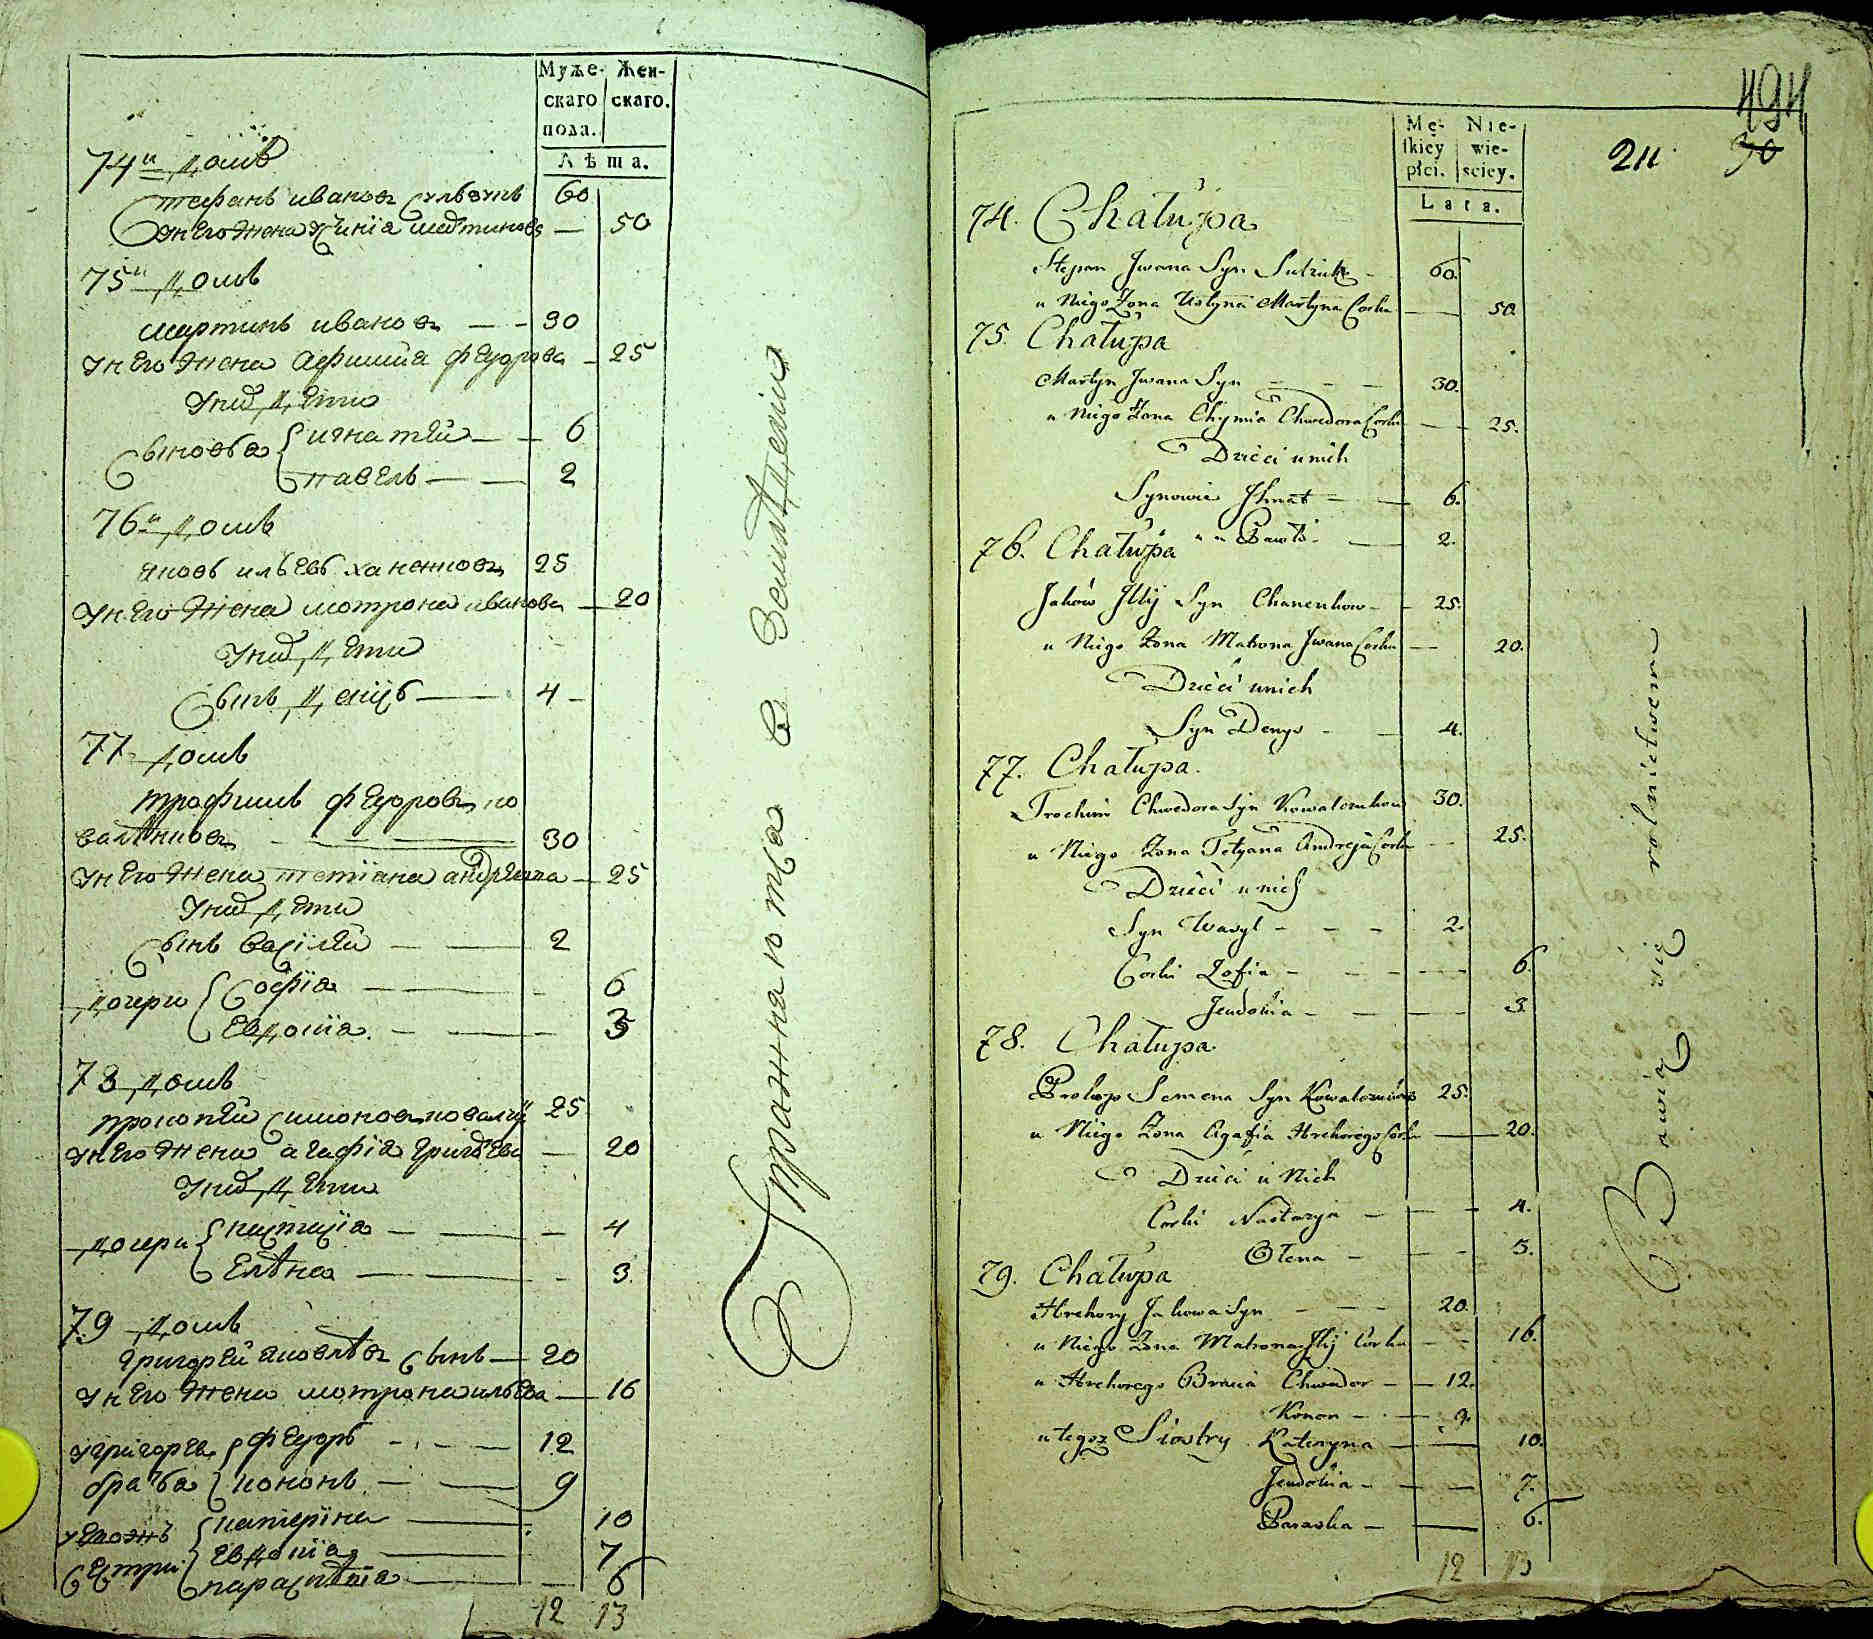 Муже- Жен-
скаго скаго.
пола.
Лѣта.
74й домъ
Стефанъ Ивановъ 60
У него жена 50
75й домъ
Мартинъ Ивановъ — - 30
У него жена Афимия Федорова - 25
У них дети
Сыновья Игнатѣй — - 6
Павелъ — — 2
76й домъ
Яковъ Ильевъ Ханенковъ 25
У него жена Мотрона Иванова — 20
У них дети
Сынъ — 4 -
77 домъ
Трофимъ Федоровъ Ко
валѣнковъ 30
У него жена Тетіана Андреева — 25
У них дети
Сынъ Василѣй — — 2
дочери Софіа — - 6
Евдокіа. - — — 3
78 домъ
Прокопѣй Симоновъ 25
У него жена Агафіа — 20
У них дети
дочери — — 4
Елѣна — - 3.
79 домъ
Григорѣй Яковлѣвъ сынъ — 20
У него жена Мотрона Ильева — 16
У Григорья Федоръ - — 12
братья Кононъ — — 9
Катеріна — 10
Евдокіа — 7
Сестри — — 6
12 13
Упражнаютса в Земледелии
494
211 30
Mę- Nie-
skiey wie-
płci. sciey.
Lata.
74. Chałupa
Stepan Jwana Syn - 60.
u Niego Żona Ustyna Martyna Corka — 50
75. Chałupa
Martyn Jwana Syn - - - 30.
u Niego Żona Chymia Chwedora Corka — 25.
Dzieci u nich
Synowie Jhnat — — 6.
" " Pawło - — 2.
76. Chałupa
Jaków Jllij Syn Chanenkow - - 25.
u Niego Żona Matrona Jwana Corka — 20.
Dzieci u nich
Syn Denys - - 4.
77. Chałupa.
Trochim Chwedora Syn 30.
u Niego Żona Tetyana Andreja Corka - 25.
Dzieci u nich
Syn Wasyl - - - 2.
Corki Zofia - - - - 6.
Jeudokia - — — 3.
78. Chałupa
Prokop Semena Syn 25.
u Niego Żona Agafia Hrehorego Corka — 20.
Dzieci u Nich
Corki Nastazya — - - 4.
Ołena - — - 3.
79. Chałupa
Hrehory Jakowa Syn - — - 20.
u Niego Żona Matrona Jllij Corka - - 16.
u Hrehorego Bracia Chwedor - — 12.
Konon - - — 9.
u tegoż Siostry Kateryna — — 10.
Jeudokia - — — 7.
Paraska — — 6.
12 13
Bawią się rolnictwem